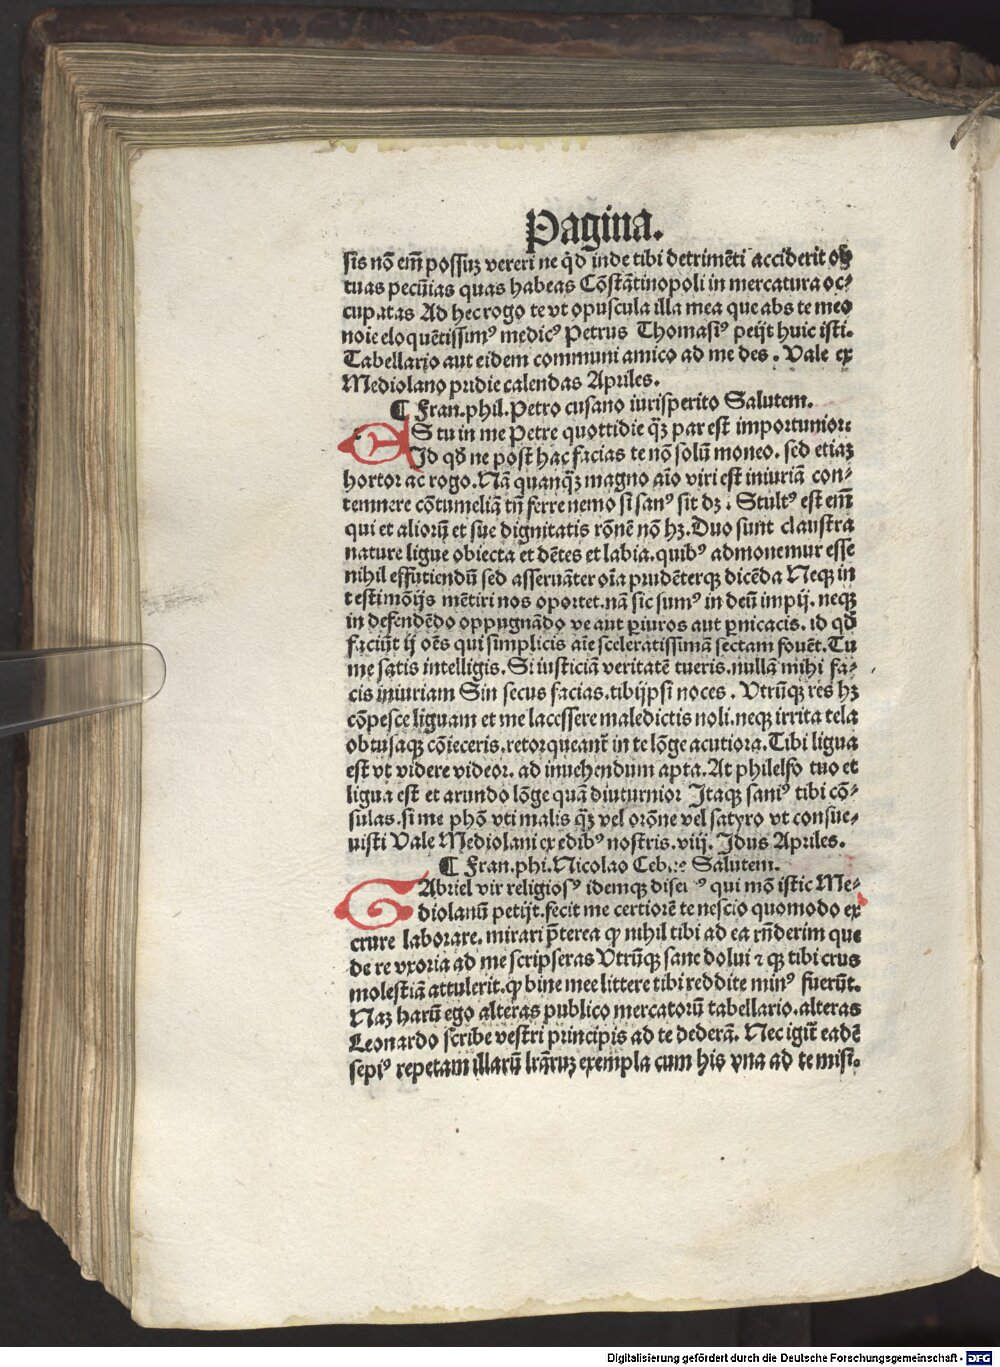 Pagina.
sis nō em̄ possuꝫ vereri ne q̄d inde tibi detrimēti acciderit ob
tuas pecūias quas habeas Cōstātinopoli in mercatura oc⸗
cupatas Ad hec rogo te vt opuscula illa mea que abs te meo
noīe eloquētissimꝰ medicꝰ Petrus Thomasiꝰ petijt huic isti.
Tabellario aut eidem communi amico ad me des . Vale ex
Mediolano pridie calendas Apriles.
¶ Fran.phil.Petro cusano iurisperito Salutem.
ES tu in me Petre quottidie q̄ꝫ par est importunior:
Id qđ ne post hac facias te nō solū moneo. sed etiaꝫ
hortor ac rogo. Nā quanq̄ꝫ magno aīo viri est iniuriā con⸗
temnere cōtumeliā tn̄ ferre nemo si sanꝰ sit dꝫ . Stultꝰ est em̄
qui et aliorū et sue dignitatis rōnē nō hꝫ. Duo sunt claustra
nature ligue obiecta et dētes et labia. quibꝰ admonemur esse
nihil effutiendū sed asseruāter oīa prudēterqꝫ dicēda Neqꝫ in
testimōijs mētiri nos oportet. nā sic sumꝰ in deū impij. neqꝫ
in defendēdo oppugnādo ve aut ꝑiuros aut ꝑnicacis. id qđ
faciūt ij oēs qui simplicis aīe sceleratissimā sectam fouēt. Tu
me satis intelligis. Si iusticiā veritatē tueris. nullā mihi fa⸗
cis iniuriam Sin secus facias. tibijpsi noces . Vtrūqꝫ res hꝫ
cōpesce liguam et me lacessere maledictis noli. neqꝫ irrita tela
obtusaqꝫ cōieceris. retorqueant̄ in te lōge acutiora. Tibi ligua
est vt videre videor. ad inuehendum apta. At philelfo tuo et
ligua est et arundo lōge quā diuturnior Itaqꝫ saniꝰ tibi cō⸗
sulas. si me phō vti malis q̄ꝫ vel orōne vel satyro vt consue⸗
uisti Vale Mediolani ex edibꝰ nostris. viij. Idus Apriles.
¶ Fran.phi.Nicolao Cebe Salutem.
GAbriel vir religiosꝰ idemqꝫ qui mō istic Me⸗
diolanū petijt. fecit me certiorē te nescio quomodo ex
crure laborare. mirari p̄terea ꝙ nihil tibi ad ea rn̄derim que
de re vxoria ad me scripseras Vtrūqꝫ sane dolui ⁊ ꝙ tibi crus
molestiā attulerit. ꝙ bine mee littere tibi reddite minꝰ fuerūt.
Naꝫ harū ego alteras publico mercatorū tabellario. alteras
Leonardo scribe vestri principis ad te dederā. Nec igit̄ eadē
sepiꝰ repetam illarū lr̄aruꝫ exempla cum his vna ad te misi.
Digitalisierung gefördert durch die Deutsche Forschungsgemeinschaft - DFG